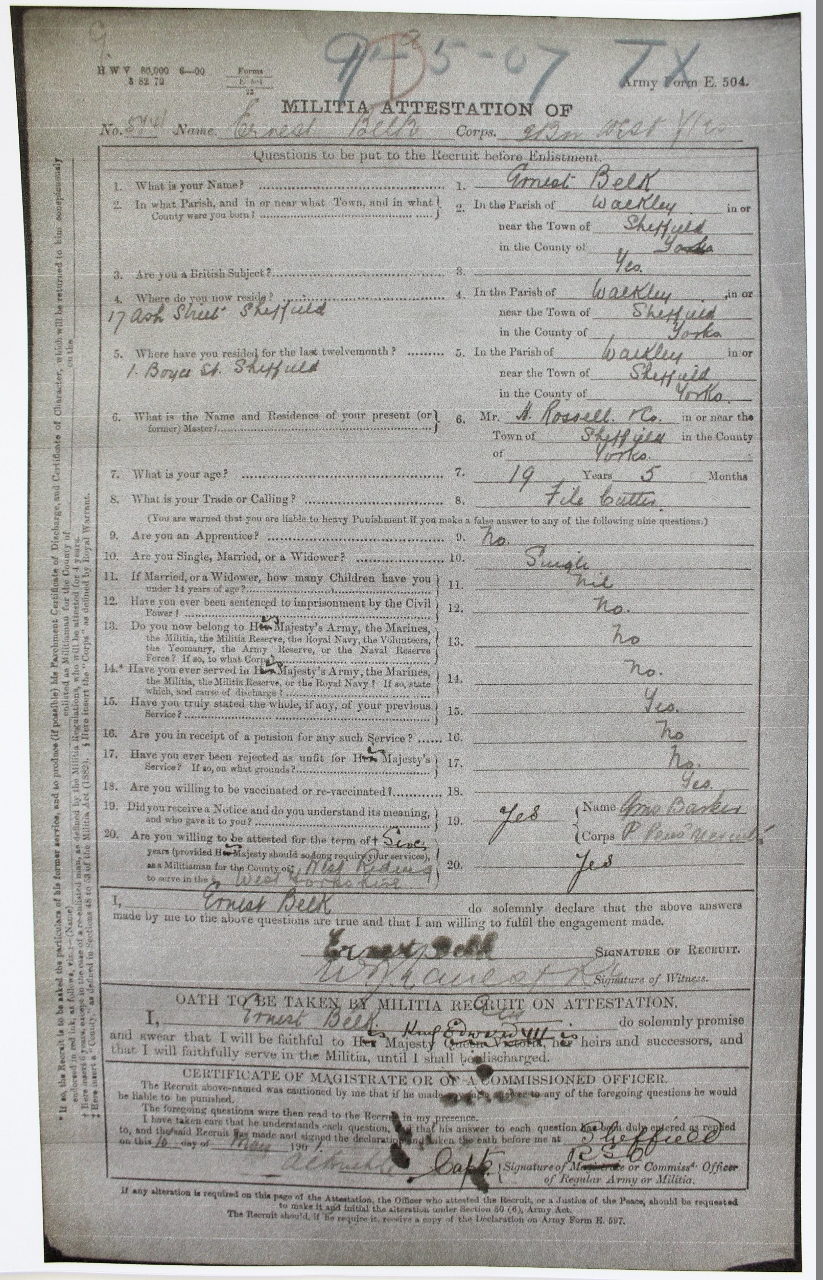 9-5-07 TX
H W V 80,000 6—00 Forms Army Form E. 504.
MILITIA ATTESTATION OF
No. Name Ernest Belk Corps. 3 Bn West Yks
Questions to be put to the Recruit before Enlistment.
1. What is your Name? 1. Ernest Belk
2. In what Parish, and in or near what Town, and in what County were you born? 2. In the Parish of Walkley in or
near the Town of Sheffield
in the County of Yorks
3. Are you a British Subject? 3. Yes.
4. Where do you now reside? 4. In the Parish of Walkley in or
17 Ash Street Sheffield near the Town of Sheffield
in the County of Yorks
5. Where have you resided for the last twelvemonth? 5. In the Parish of Walkley in or
1. Boyce St. Sheffield near the Town of Sheffield
in the County of Yorks.
6. What is the Name and Residence of your present (or former) Master? 6. Mr. H. Rossell & Co. in or near the
Town of Sheffield in the County
of Yorks.
7. What is your age? 7. 19 Years 5 Months
8. What is your Trade or Calling? 8. File Cutter.
(You are warned that you are liable to heavy Punishment if you make a false answer to any of the following nine questions.)
9. Are you an Apprentice? 9. No.
10. Are you Single, Married, or a Widower? 10. Single
11. If Married, or a Widower, how many Children have you
under 14 years of age? 11. nil
12. Have you ever been sentenced to imprisonment by the Civil
Power? 12. No.
13. Do you now belong to His Majesty's Army, the Marines,
the Militia, the Militia Reserve, the Royal Navy, the Volunteers,
the Yeomanry, the Army Reserve, or the Naval Reserve
Force? If so, to what Corps? 13. No
14.* Have you ever served in His Majesty's Army, the Marines,
the Militia, the Militia Reserve, or the Royal Navy? If so, state
which, and cause of discharge? 14. No.
15. Have you truly stated the whole, if any, of your previous
Service? 15. Yes.
16. Are you in receipt of a pension for any such Service? 16. No
17. Have you ever been rejected as unfit for His Majesty's
Service? If so, on what grounds? 17. No.
18. Are you willing to be vaccinated or re-vaccinated? 18. Yes.
19. Did you receive a Notice and do you understand its meaning,
and who gave it to you? 19. Yes Name Geo Barker
Corps
20. Are you willing to be attested for the term of † Six
years (provided His Majesty should so long require your services),
as a Militiaman for the County of ‡ West Riding
to serve in the § West Yorkshire 20. Yes
I, Ernest Belk do solemnly declare that the above answers
made by me to the above questions are true and that I am willing to fulfil the engagement made.
Ernest Belk SIGNATURE OF RECRUIT.
Signature of Witness.
OATH TO BE TAKEN BY MILITIA RECRUIT ON ATTESTATION.
I, Ernest Belk do solemnly promise
and swear that I will be faithful to His Majesty King Edward VII his heirs and successors, and
that I will faithfully serve in the Militia, until I shall be discharged.
CERTIFICATE OF MAGISTRATE OR OF A COMMISSIONED OFFICER.
The Recruit above-named was cautioned by me that if he made any false answer to any of the foregoing questions he would
be liable to be punished.
The foregoing questions were then read to the Recruit in my presence.
I have taken care that he understands each question, and that his answer to each question has been duly entered as replied
to, and the said Recruit has made and signed the declaration and taken the oath before me at Sheffield
on this 10 day of May 190
Capt Signature of Magistrate or Commissd Officer
of Regular Army or Militia.
If any alteration is required on this page of the Attestation, the Officer who attested the Recruit, or a Justice of the Peace, should be requested
to make it and initial the alteration under Section 80 (6), Army Act.
The Recruit should, if he require it, receive a copy of the Declaration on Army Form E. 597.
* If so, the Recruit is to be asked the particulars of his former service, and to produce (if possible) his Parchment Certificate of Discharge, and Certificate of Character, which will be returned to him conspicuously
endorsed in red ink, as follows, viz.:—(Name) enlisted as Militiaman for the County of on the
† Here insert 6 years, except in the case of a re-enlisted man, as defined by the Militia Regulations, who will be attested for 4 years.
‡ Here insert a "County," as defined in Sections 48 to 53 of the Militia Act (1882). § Here insert the "Corps" as defined by Royal Warrant.